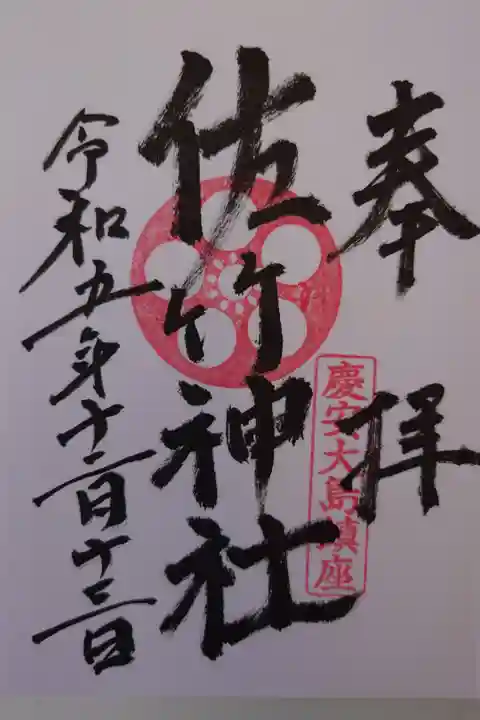 奉拝
慶安大島鎮座
佐竹神社
令和五年十二月十三日